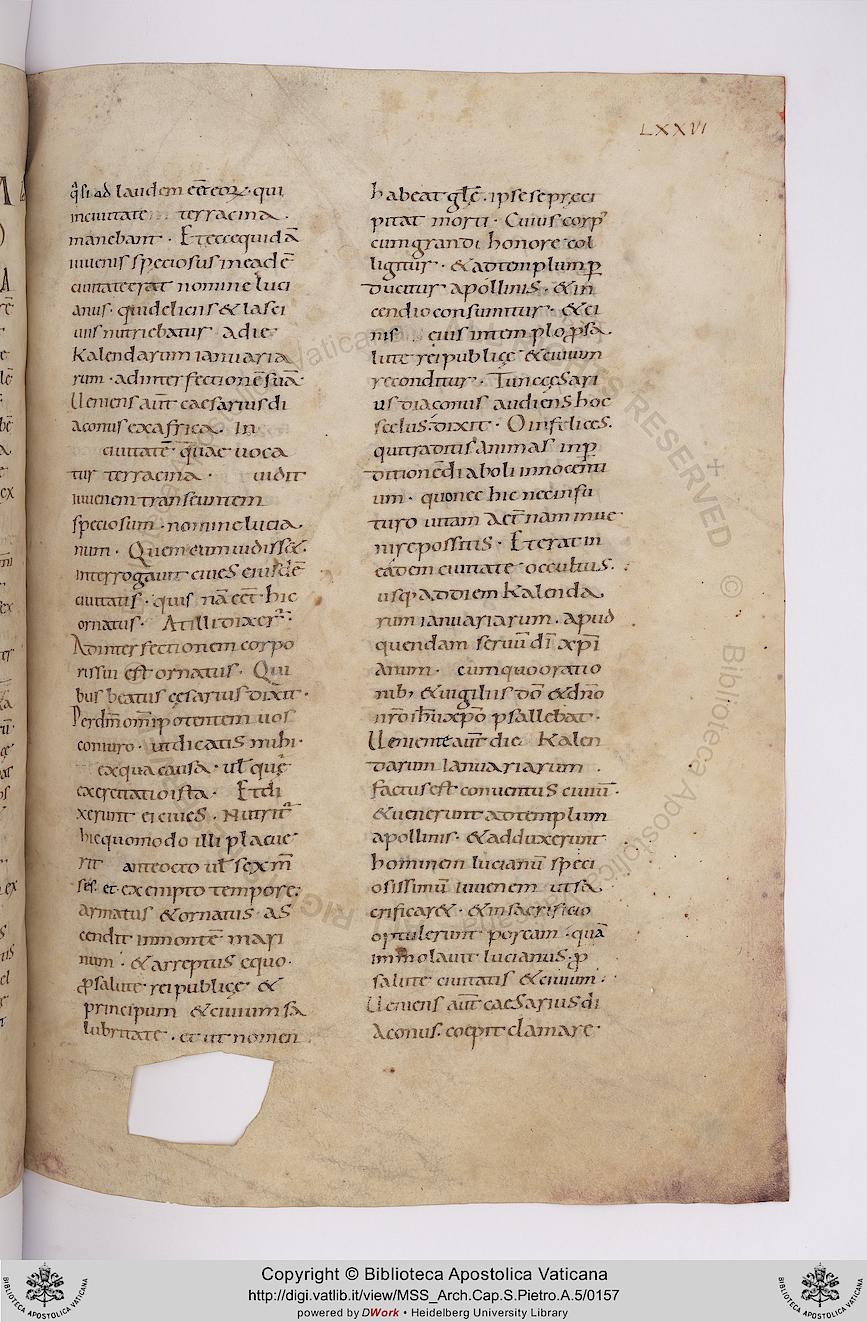 LXXVI
q̃si ad laudem eēt eoꝝ · qui
in ciuitate terracina ·
manebant · Et ecce quidã
iuuenis speciosus in eadẽ
ciuitate erat nomine luci
anus · qui deliciis & lasci
uiis nutriebatur a die
Kalendarum ianuaria
rum · ad interfectionẽ suã
Ueniens aut̃ caesarius di
aconus ex africa · In
ciuitatẽ quae uoca
tur terracina · uidit
iuuenem transeuntem
speciosum · nomine lucia
num · Quem cum uidiss&
interrogauit ciues eiusdẽ
ciuitatis · quis nã eēt hic
ornatus · At illi dixer̃
Ad interfectionem corpo
ris sui est ornatus · Qui
bus beatus cęsarius dixit ·
Per dm̃ omnipotentem uos
coniuro · ut dicatis mihi ·
ex qua causa · ul̃ que
exercitatio ista · Et di
xerunt ei ciues · Nutrit̃
hic quomodo illi placue
rit ante octo ul̃ sex m̃
ses · et exempto tempore
armatus & ornatus · as
cendit in montẽ mari
num · & arreptus equo ·
ꝓ salute rei publicę &
principum & ciuium sa
lubritate · et ut nomen
habeat gl̃ę · ipse se preci
pitat morti · Cuius corp'
cum grandi honore col
ligitur · & ad templum ꝑ
ducitur apollinis · & in
cendio consumitur · & ci
nis eius in templo ꝓ sa
lute rei publicę & ciuium
reconditur · Tunc cęsari
us diaconus audiens hoc
scelus · dixit · O infelices
qui traditis animas in ꝑ
ditionẽ diaboli innocenti
um · quo nec hic nec in fu
turo uitam aet̃nam inue
nire possitis · Et erat in
eadem ciuitate occultus ·
usq; ad diem Kalenda
rum ianuariarum · apud
quendam seruũ dĩ xp̃i
anum · cum quo oratio
nib; & uigiliis dõ & dño
nr̃o ihũ xp̃o psallebat ·
Ueniente aut̃ die Kalen
darum Ianuariarum ·
factus est conuentus ciuiũ ·
& uenerunt ad templum
apollinis · & adduxerunt
hominem lucianũ speci
osissimũ iuuenem ut sa
crificar& · & in sacrificio
optulerunt porcam · quã
immolauit lucianus · ꝓ
salute ciuitatis & ciuium ·
Ueniens aut̃ caesarius di
aconus · coepit clamare ·
Copyright © Biblioteca Apostolica Vaticana
http://digi.vatlib.it/view/MSS_Arch.Cap.S.Pietro.A.5/0157
powered by DWork • Heidelberg University Library